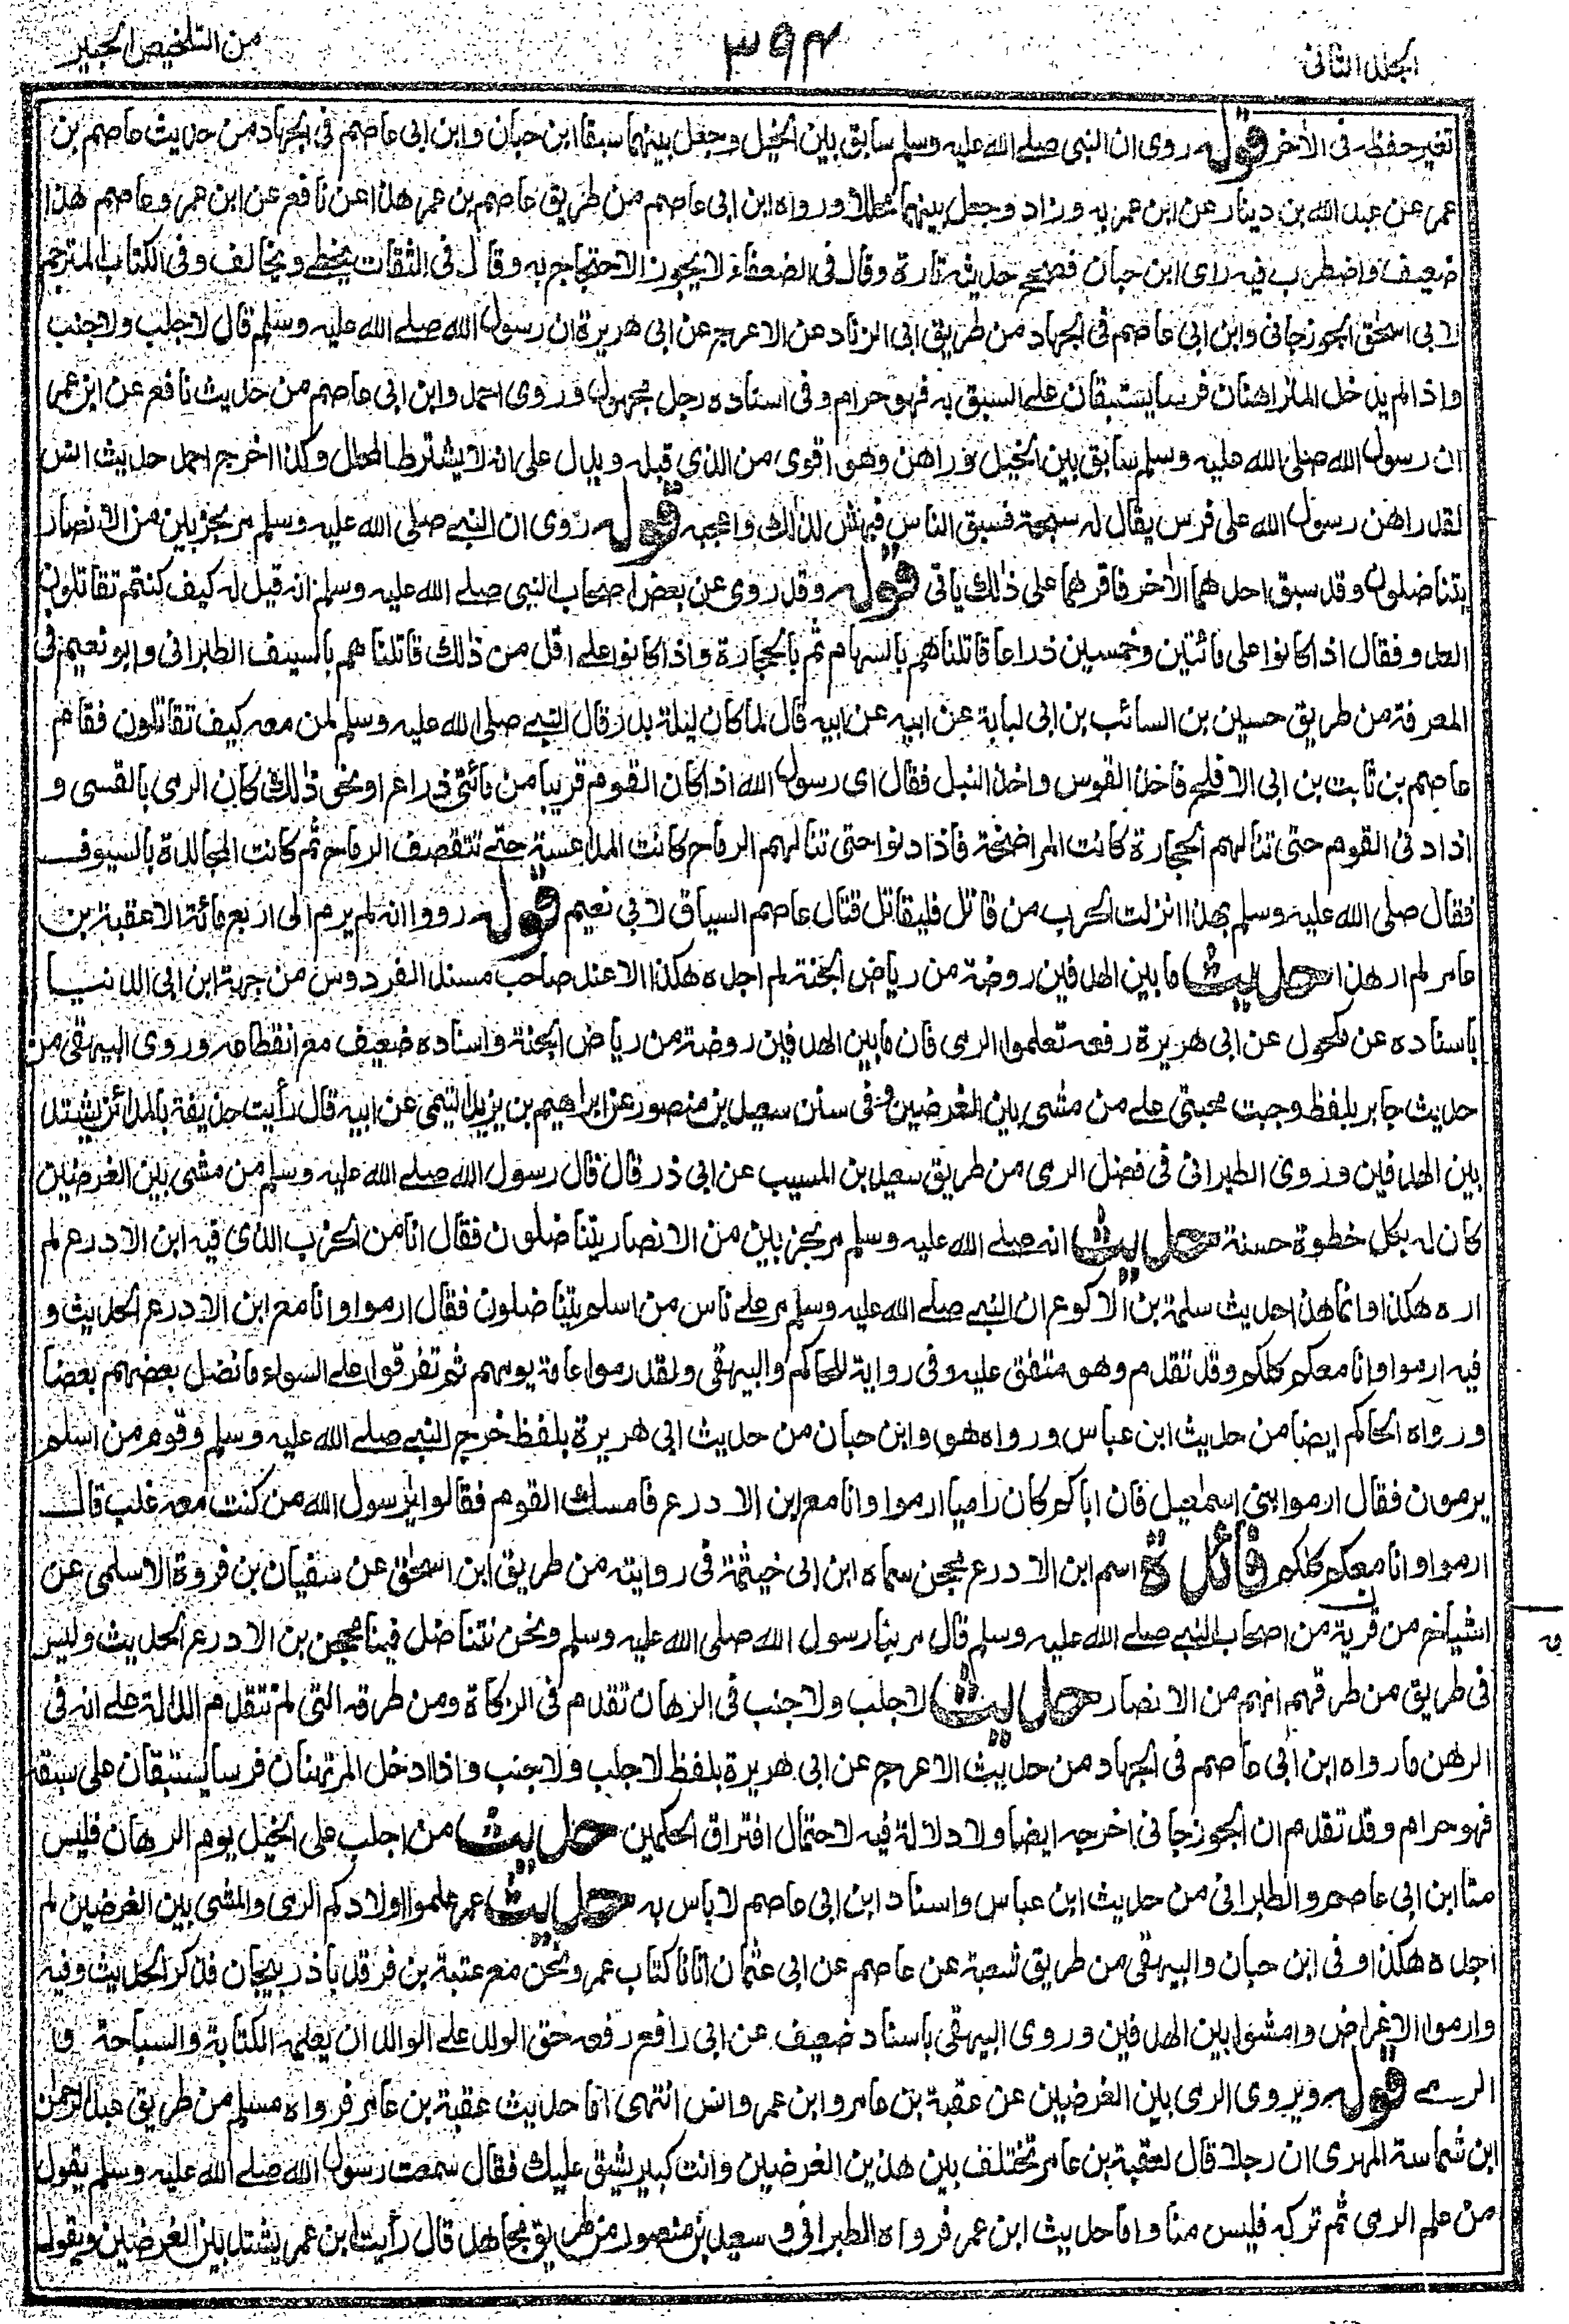 الجلد الثانى
٣٩٤
من التلخيص الحبير
تغير حفظه فى الاخر قوله روى ان النبى صلے الله عليه وسلم سابق بين الخيل وجعل بينهما سبقا ابن حبان وابن ابى عاصم فى الجهاد من حديث عاصم بن
عمر عن عبد الله بن دينار عن ابن عمر به وزاد وجعل بينهما محللا ورواه ابن ابى عاصم من طريق عاصم بن عمر هذا عن نافع عن ابن عمر وعاصم هذا
ضعيف واضطرب فيه راى ابن حبان فصحح حديثه تارة وقال فى الضعفاء لا يجوز الاحتجاج به وقال فى الثقات يخطے ويخالف وفى الكتاب المترجم
لابى اسحٰق الجوزجانى وابن ابى عاصم فى الجهاد من طريق ابى الزناد عن الاعرج عن ابى هريرة ان رسول الله صلے الله عليه وسلم قال لا جلب ولا جنب
واذا لم يدخل المتراهنان فرسا يستبقان علے السبق به فهو حرام وفى اسناده رجل مجهول وروى احمد وابن ابى عاصم من حديث نافع عن ابن عمر
ان رسول الله صلى الله عليه وسلم سابق بين الخيل وراهن وهو اقوى من الذي قبله ويدل على انه لا يشترط المحلل وكذا اخرج احمد حديث انس
لقد راهن رسول الله على فرس يقال له سبحة فسبق الناس فبهش لذلك واعجبه قوله روى ان النبے صلى الله عليه وسلم مر بحزبين من الانصار
يتناضلون وقد سبق احدهما الاخر فاقرهما على ذلك ياتى قوله وقد روى عن بعض اصحاب النبى صلے الله عليه وسلم انه قيل له كيف كنتم تقاتلون
العدو فقال اذا كانوا على مائتين وخمسين ذراعا قاتلناهم بالسهام ثم بالحجارة واذا كانوا علے اقل من ذلك قاتلناهم بالسيف الطبرانى وابو نعيم فى
المعرفة من طريق حسين بن السائب بن ابى لبابة عن ابيه عن ابيه قال لما كان ليلة بدر قال النبے صلى الله عليه وسلم لمن معه كيف تقاتلون فقام
عاصم بن ثابت بن ابى الاقلح فاخذ القوس واخذ النبل فقال اى رسول الله اذا كان القوم قريبا من مائتى ذراع او نحو ذلك كان الرمى بالقسى و
اذا دنى القوم حتى تنالهم الحجارة كانت المراضخة فاذا دنوا حتى تنالهم الرماح كانت المداعسة حتے تتقصف الرماح ثم كانت المجالدة بالسيوف
فقال صلى الله عليه وسلم بهذا انزلت الحرب من قاتل فليقاتل قتال عاصم السياق لابى نعيم قوله رووا انه لم يرم الى اربع مائة الا عقبة بن
عامر لم ار هذا حديث ما بين الهدفين روضة من رياض الجنة لم اجده هكذا الا عند صاحب مسند الفردوس من جهة ابن ابى الدنيا
باسناده عن مكحول عن ابى هريرة رفعه تعلموا الرمى فان ما بين الهدفين روضة من رياض الجنة واسناده ضعيف مع انقطاعه وروى البيهقى من
حديث جابر بلفظ وجبت محبتى علے من مشى بين الغرضين وفى سنن سعيد بن منصور عن ابراهيم بن يزيد التيمى عن ابيه قال رأيت حذيفة بالمدائن يشتد
بين الهدفين وروى الطبرانى فى فضل الرمى من طريق سعيد بن المسيب عن ابى ذر قال قال رسول الله صلے الله عليه وسلم من مشى بين الغرضين
كان له بكل خطوة حسنة حديث انه صلے الله عليه وسلم مر بحزبين من الانصار يتناضلون فقال انا من الحزب الذى فيه ابن الادرع لم
اره هكذا وانما هذا حديث سلمة بن الاكوع ان النبے صلے الله عليه وسلم مر علے ناس من اسلم يتناضلون فقال ارموا وانا مع ابن الادرع الحديث و
فيه ارموا وانا معكم كلكم وقد تقدم وهو متفق عليه وفى رواية للحاكم والبيهقى ولقد رموا عامة يومهم ثم تفرقوا علے السواء ما نضل بعضهم بعضا
ورواه الحاكم ايضا من حديث ابن عباس ورواه هو وابن حبان من حديث ابى هريرة بلفظ خرج النبے صلے الله عليه وسلم وقوم من اسلم
يرمون فقال ارموا بنى اسمعيل فان اباكم كان راميا ارموا وانا مع ابن الادرع فامسك القوم فقالوا يا رسول الله من كنت معه غلب قال
ارموا وانا معكم كلكم فائدة اسم ابن الادرع محجن سماه ابن ابى خيثمة فى روايته من طريق ابن اسحٰق عن سفيان بن فروة الاسلمى عن
اشياخ من قرية من اصحاب النبے صلے الله عليه وسلم قال مر بنا رسول الله صلى الله عليه وسلم ونحن نتناضل فينا محجن بن الادرع الحديث وليس
فى طريق من طرقهم انهم من الانصار حديث لا جلب ولا جنب فى الرهان تقدم فى الزكاة ومن طرقه التى لم تتقدم الدالة علے انه فى
الرهن ما رواه ابن ابى عاصم فى الجهاد من حديث الاعرج عن ابى هريرة بلفظ لا جلب ولا جنب واذا ادخل المرتهنان فرسا يستبقان على سبقه
فهو حرام وقد تقدم ان الجوزجانى اخرجه ايضا ولا دلالة فيه لاحتمال افتراق الحكمين حديث من اجلب على الخيل يوم الرهان فليس
منا ابن ابى عاصم والطبرانى من حديث ابن عباس واسناد ابن ابى عاصم لا باس به حديث عمر علموا اولادكم الرمى والمشى بين الغرضين لم
اجده هكذا وفى ابن حبان والبيهقى من طريق شعبة عن عاصم عن ابى عثمان اتانا كتاب عمر ونحن مع عتبة بن فرقد باذربيجان فذكر الحديث وفيه
وارموا الاغراض وامشوا بين الهدفين وروى البيهقى باسناد ضعيف عن ابى رافع رفعه حق الولد علے الوالد ان يعلمه الكتابة والسباحة و
الرمے قوله ويروى الرمى بين الغرضين عن عقبة بن عامر وابن عمر وانس انتهى اما حديث عقبة بن عامر فرواه مسلم من طريق عبد الرحمن
ابن شماسة المهرى ان رجلا قال لعقبة بن عامر تختلف بين هذين الغرضين وانت كبير يشق عليك فقال سمعت رسول الله صلے الله عليه وسلم يقول
من علم الرمى ثم تركه فليس منا واما حديث ابن عمر فرواه الطبرانى و سعيد بن منصور من طريق مجاهد قال رأيت ابن عمر يشتد بين الغرضين ويقول